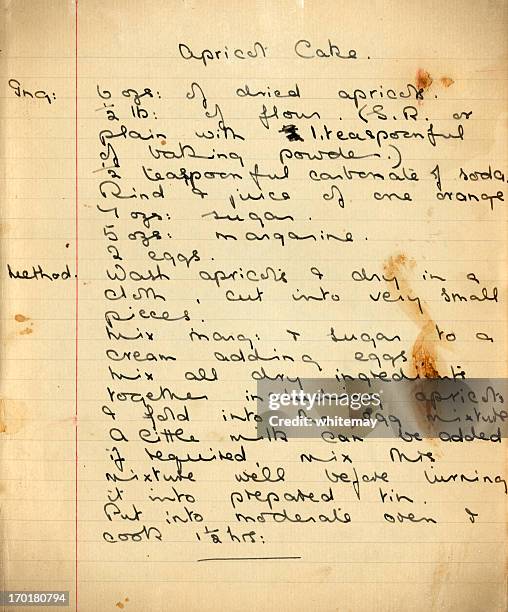 Apricot Cake.
Ing: 6 ozs: of dried apricots.
½ lb: of flour. (S.R. or
plain with 1 teaspoonful
of baking powder.)
½ teaspoonful carbonate of soda.
Rind & juice of one orange
4 ozs: sugar.
5 ozs: margarine.
2 eggs.
Method. Wash apricots & dry in a
cloth, cut into very small
pieces.
Mix marg: & sugar to a
cream adding eggs
Mix all dry ingredients
together in apricots
& fold into egg mixture
A little milk can be added
if required, mix this
mixture well before turning
it into prepared tin.
Put into moderate oven &
cook 1½ hrs:
gettyimages
Credit: whitemay
170180794